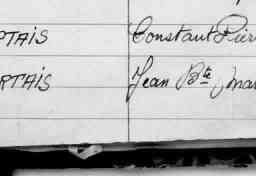 PTAIS Constant Pier
RTAIS Jean Bte Mar